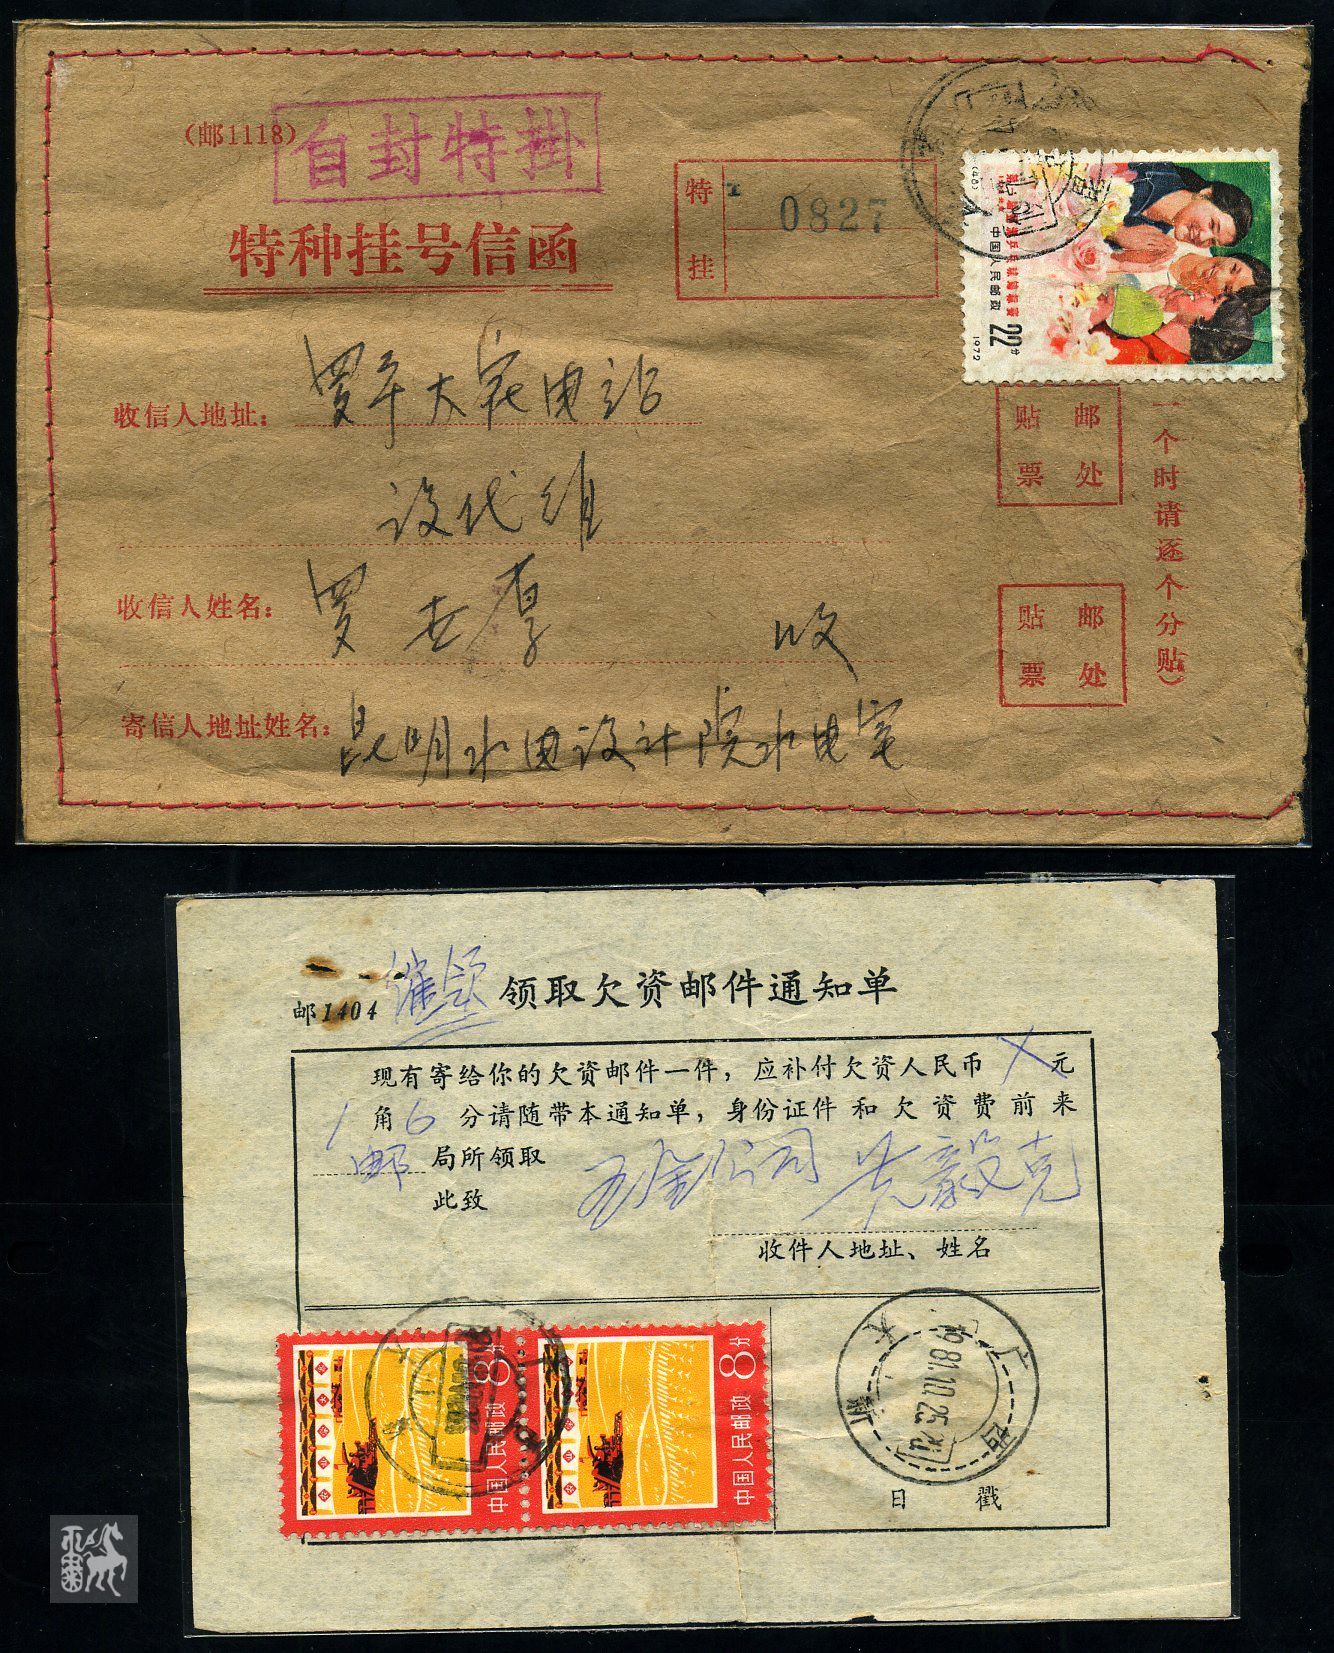 (邮1118)
自封特掛
特种挂号信函
特挂
0827
(48)
中国人民邮政
22分
1972
收信人地址：
罗平大寨电站
设代组
收信人姓名：
罗世厚
收
寄信人地址姓名：
昆明水电设计院水电室
贴邮
票处
贴邮
票处
一个时请逐个分贴)
邮1404
催领
领取欠资邮件通知单
现有寄给你的欠资邮件一件，应补付欠资人民币 X 元
1 角 6 分请随带本通知单，身份证件和欠资费前来
邮 局所领取
此致
五金公司
毅克
收件人地址、姓名
8分
中国人民邮政
8分
中国人民邮政
广西
1981.10.25.
日 戳